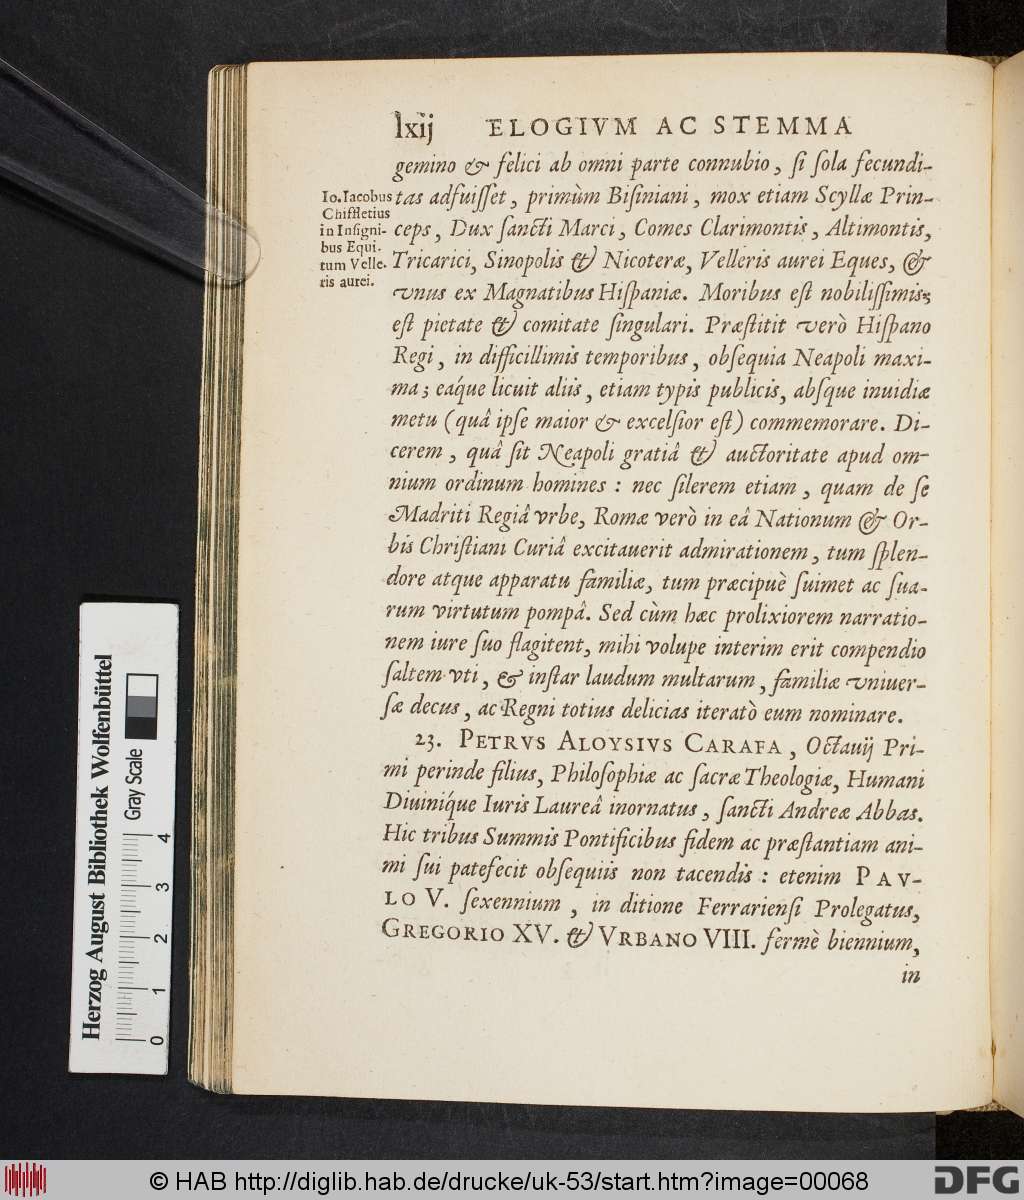 lxij ELOGIVM AC STEMMA
gemino & felici ab omni parte connubio, ſi ſola fecundi-
tas adfuiſſet, primùm Biſiniani, mox etiam Scyllæ Prin-
ceps, Dux ſancti Marci, Comes Clarimontis, Altimontis,
Tricarici, Sinopolis & Nicoteræ, Velleris aurei Eques, &
vnus ex Magnatibus Hiſpaniæ. Moribus eſt nobiliſſimis;
eſt pietate & comitate ſingulari. Præſtitit verò Hiſpano
Regi, in difficillimis temporibus, obſequia Neapoli maxi-
ma; eáque licuit aliis, etiam typis publicis, abſque inuidiæ
metu (quâ ipſe maior & excelſior eſt) commemorare. Di-
cerem, quâ ſit Neapoli gratiâ & auctoritate apud om-
nium ordinum homines : nec ſilerem etiam, quam de ſe
Madriti Regiâ vrbe, Romæ verò in eâ Nationum & Or-
bis Chriſtiani Curiâ excitauerit admirationem, tum ſplen-
dore atque apparatu familiæ, tum præcipuè ſuimet ac ſua-
rum virtutum pompâ. Sed cùm hæc prolixiorem narratio-
nem iure ſuo flagitent, mihi volupe interim erit compendio
ſaltem vti, & inſtar laudum multarum, familiæ vniuer-
ſæ decus, ac Regni totius delicias iteratò eum nominare.
23. PETRVS ALOYSIVS CARAFA, Octauij Pri-
mi perinde filius, Philoſophiæ ac ſacræ Theologiæ, Humani
Diuiníque Iuris Laureâ inornatus, ſancti Andreæ Abbas.
Hic tribus Summis Pontificibus fidem ac præſtantiam ani-
mi ſui patefecit obſequiis non tacendis : etenim PAV-
LO V. ſexennium, in ditione Ferrarienſi Prolegatus,
GREGORIO XV. & VRBANO VIII. fermè biennium,
in
Io.Iacobus
Chiffletius
in Inſigni-
bus Equi-
tum Velle-
ris aurei.
Herzog August Bibliothek Wolfenbüttel
Gray Scale
0 1 2 3 4
© HAB http://diglib.hab.de/drucke/uk-53/start.htm?image=00068
DFG